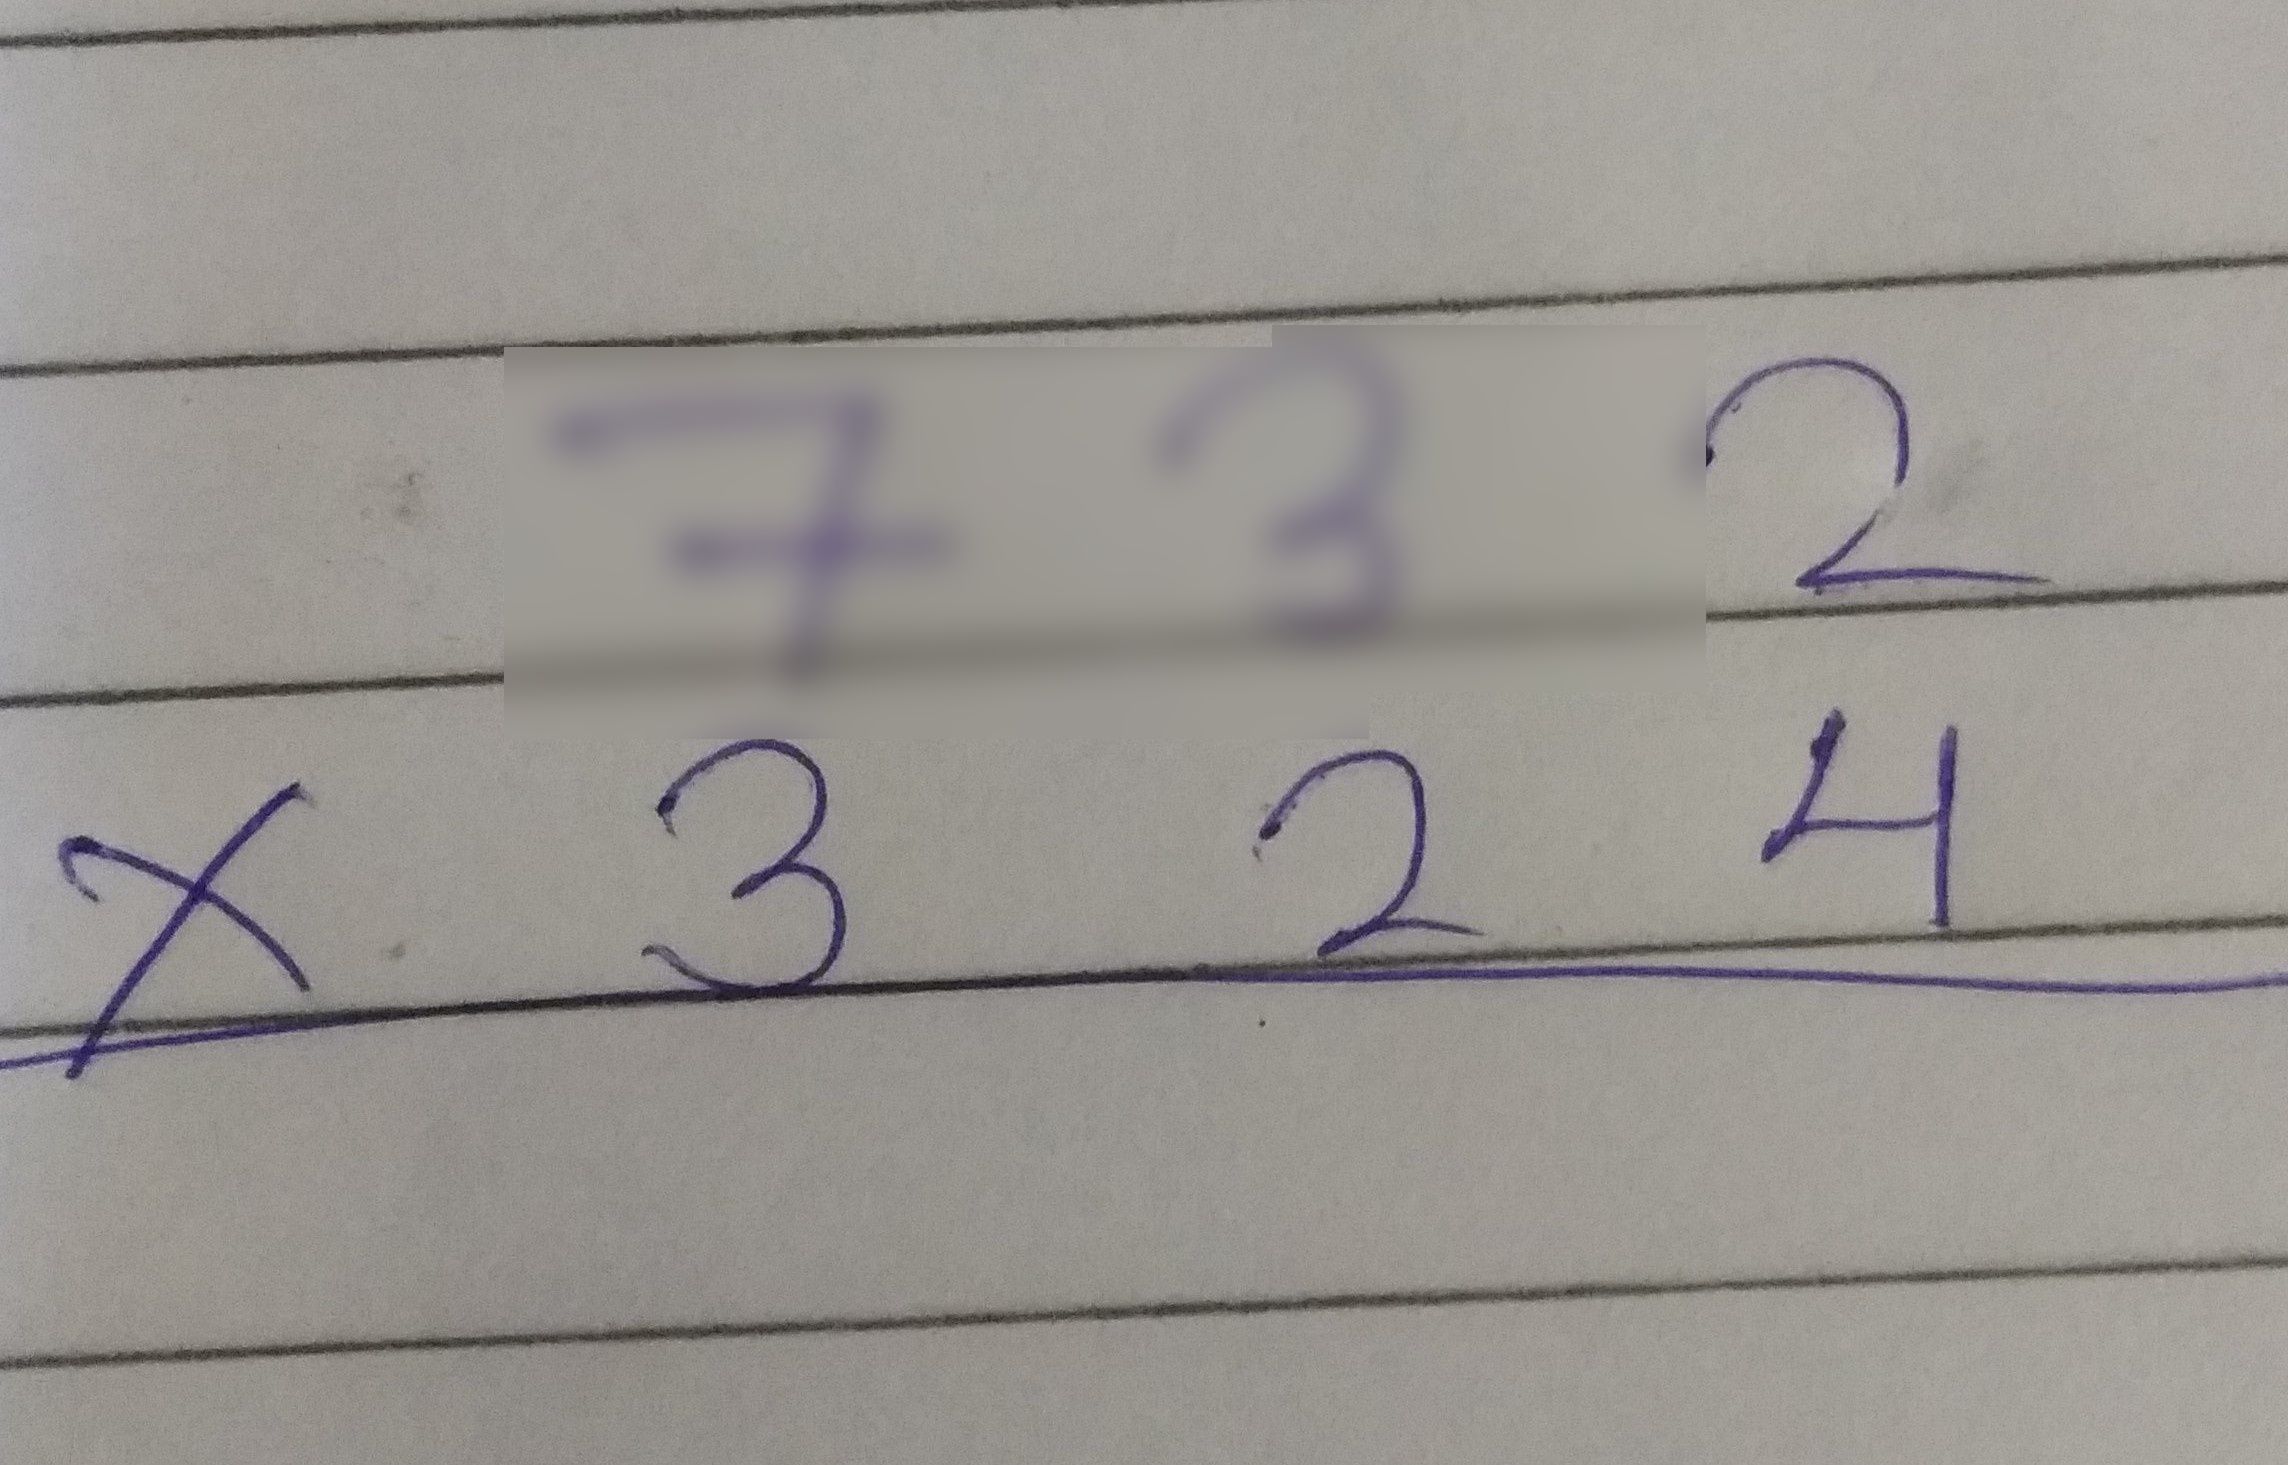 7 3 2
x 3 2 4